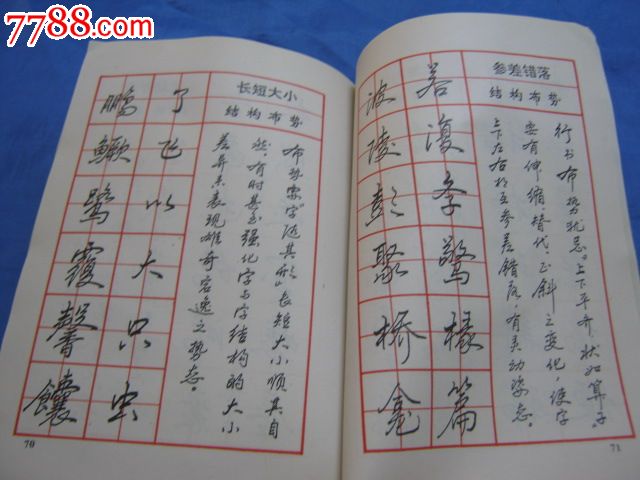 7788.com
长短大小
结构布势
布势要字"随其形",长短大小顺其自
然,有时甚至强化字与字结构的大小
差异来表现雄奇容逸之势态。
了飞以大只虫
鹏鳜鹭霞馨馕
70
参差错落
结构布势
行书布势犹忌"上下平齐,状如算子"。
要有伸缩替代、正斜之变化,使字
上下左右相互参差错落,有灵动姿态。
若復冬驚椽篇
波陵彭聚桥龛
71